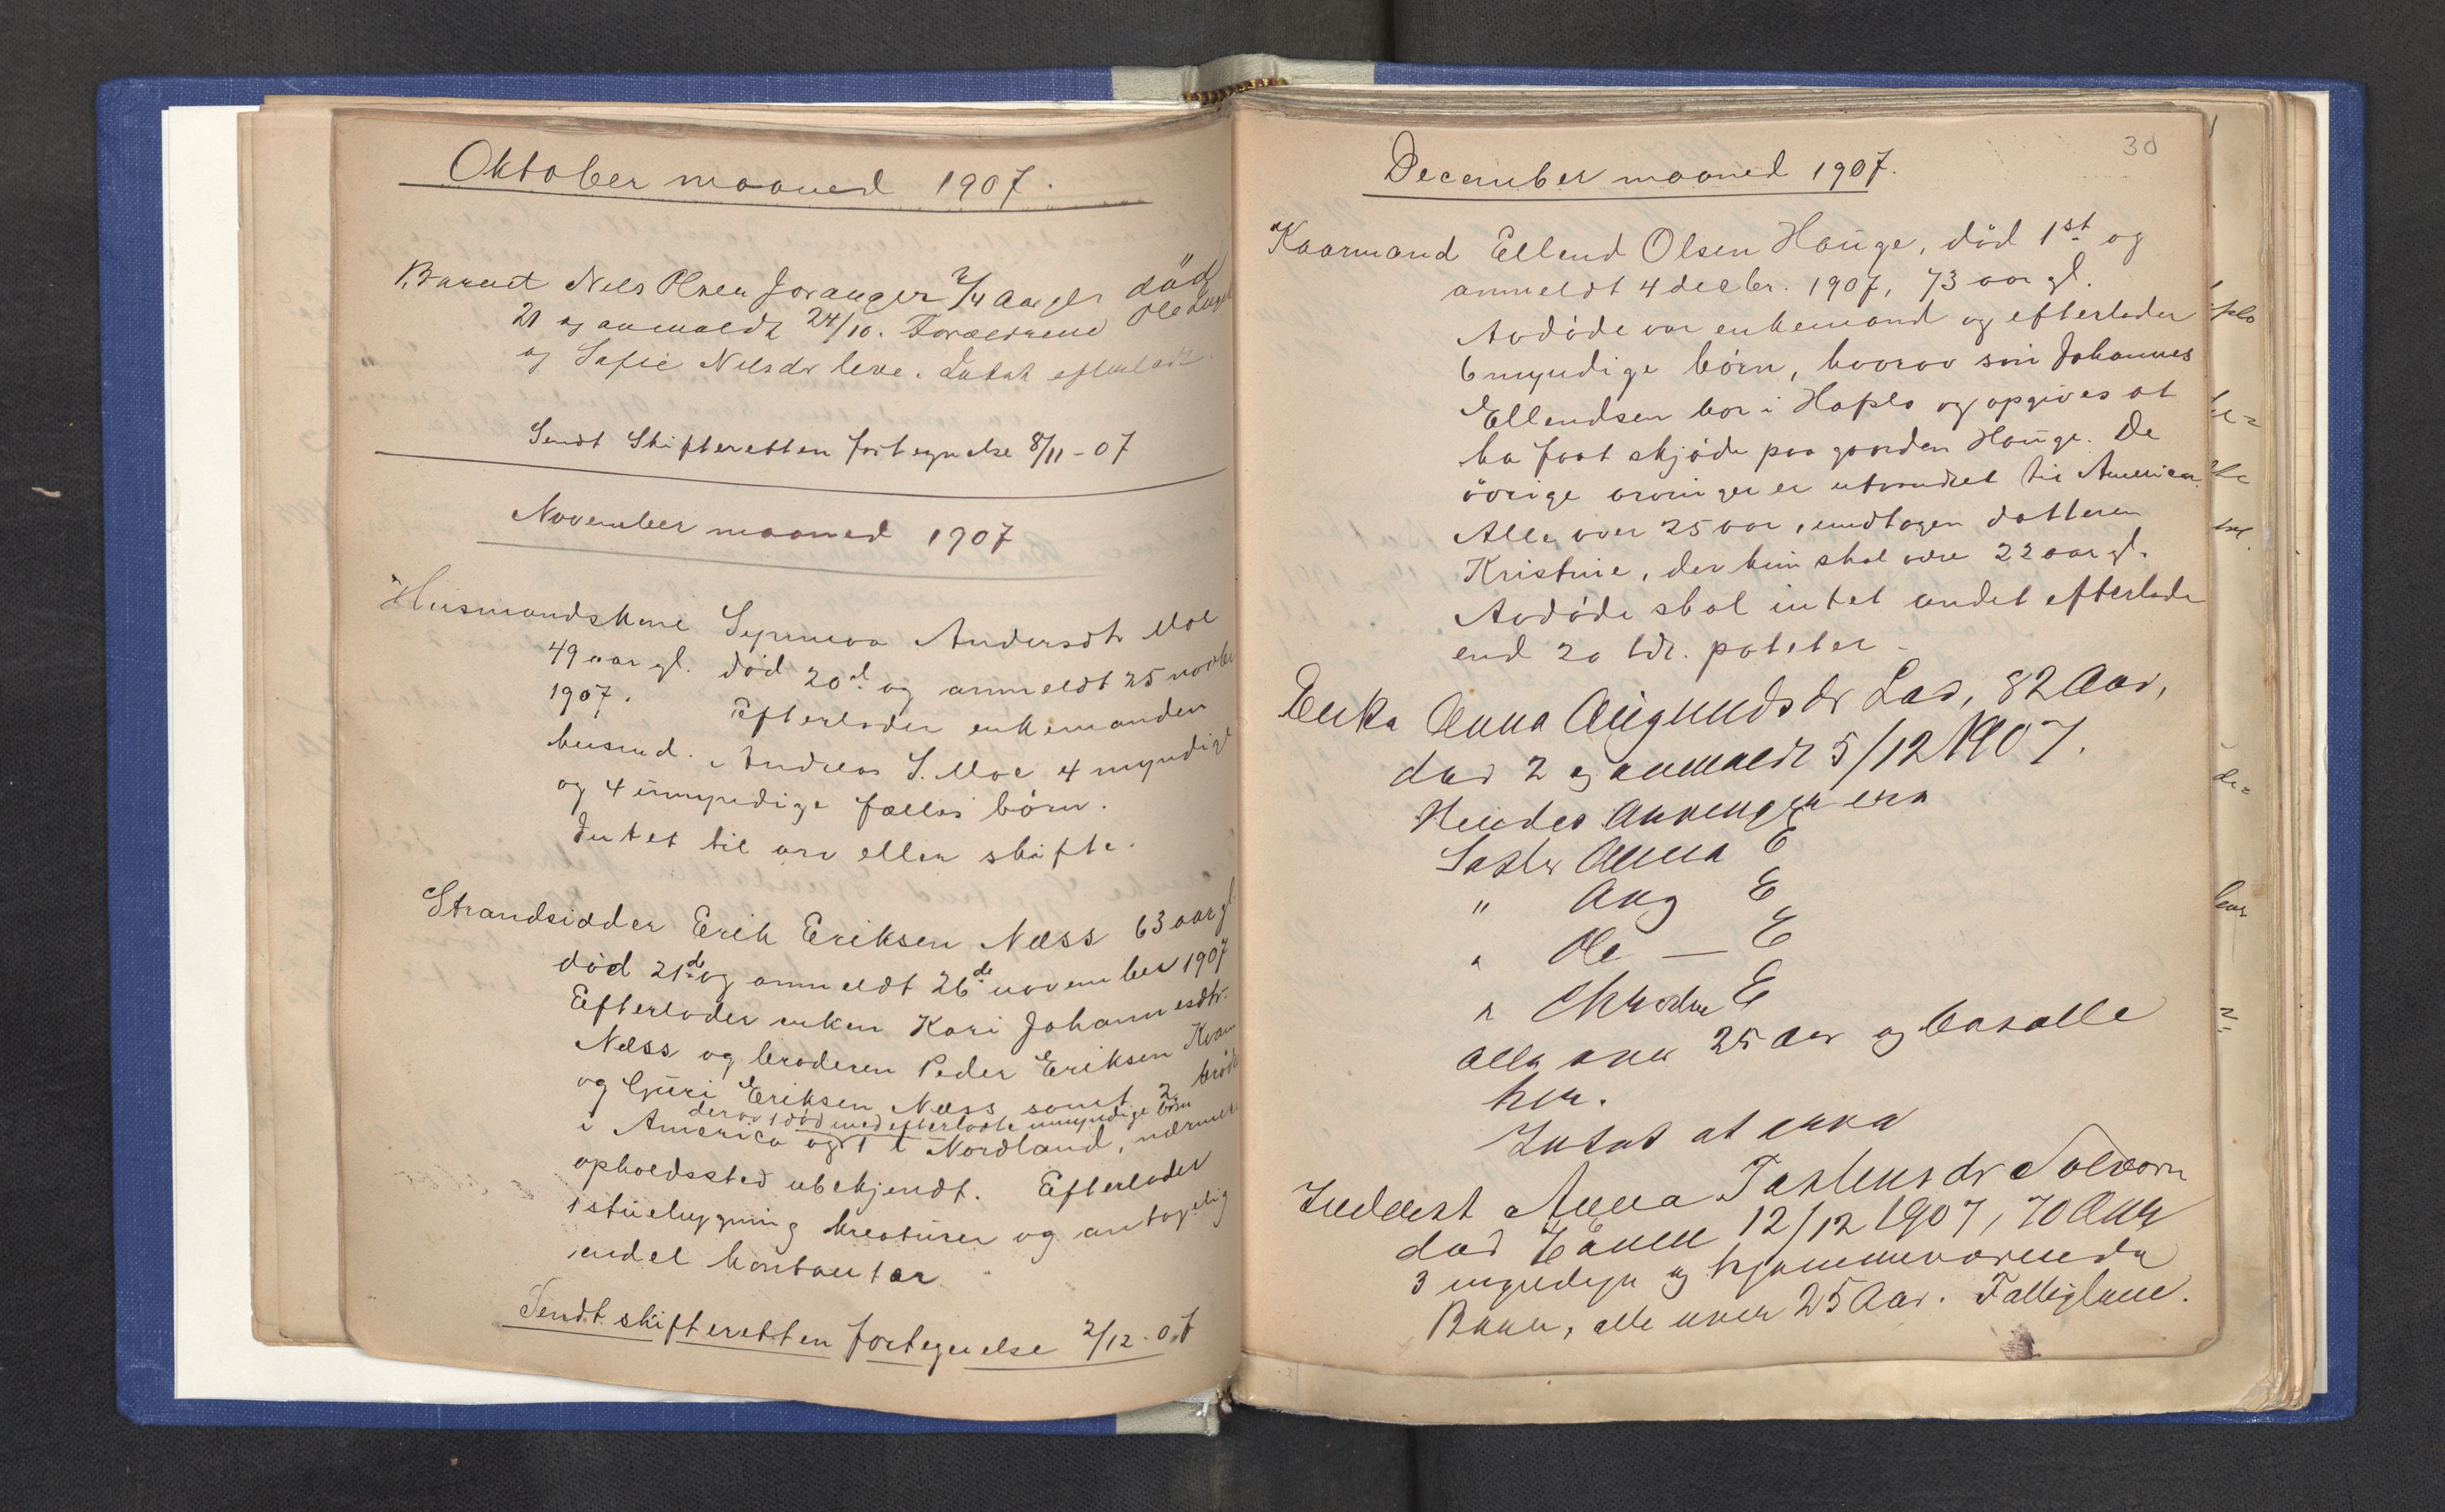 Oktober maaned 1907.
Barnet Nels Olsen Joranger 2/4 Aar gl. död
21 og anmeldt 24/10. Forældrene Ole
og Sofie Nilsdr leve. Intet efterladt.
Sendt Skifteretten fortegnelse 8/11 - 07
November maaned 1907
Husmandskone Synneva Andersdtr Moe
49 aar gl. död 20d. og anmeldt 25 novbr
1907. Efterlader enkemanden
husmd. Andreas S. Moe 4 myndige
og 4 umyndige fælles börn.
Intet til arv eller skifte.
Strandsidder Erik Eriksen Næss 63 aar gl.
död 21de og anmeldt 26de november 1907
Efterlader enken Kari Johannesdtr.
Næss og broderen Peder Eriksen Kvam
og Guri Eriksen Næss samt 2 brödre
derav 1 död med efterladte umyndige börn
i America og 1 i Nordland, nærmere
opholdssted ubekjendt. Efterlader
1 stuebygning kreaturer og antagelig
endel kontanter
Sendt skifteretten fortegnelse 2/12 - 07
30
December maaned 1907.
Kaarmand Ellend Olsen Hauge, död 1st og
anmeldt 4 decbr. 1907, 73 aar gl.
Avdöde var enkemand og efterlader
6 myndige börn, hvorav sön Johannes
Ellendsen bor i Hafslo og opgives at
ha faat skjöde paa gaarden Hauge. De
övrige arvinger er utvandret til America.
Alle over 25 aar, undtagen datteren
Kristine, der kun skal være 22 aar gl.
Avdöde skal intet andet efterlade
end 20 tdr. poteter -
Enke Anna Augundsdr Lad, 82 Aar,
död 2 og anmeldt 5/12 1907.
Hendes Arvinger ere
Søster Anna E
" E
" Ole — E
" E
alle over 25 Aar og bosatte
her.
Intet at arve
Inderst Anna Torstensdr Solvorn
död 12/12 1907, 70 Aar
3 myndige og hjemmeværende
Børn, alle over 25 Aar. Fattiglem.